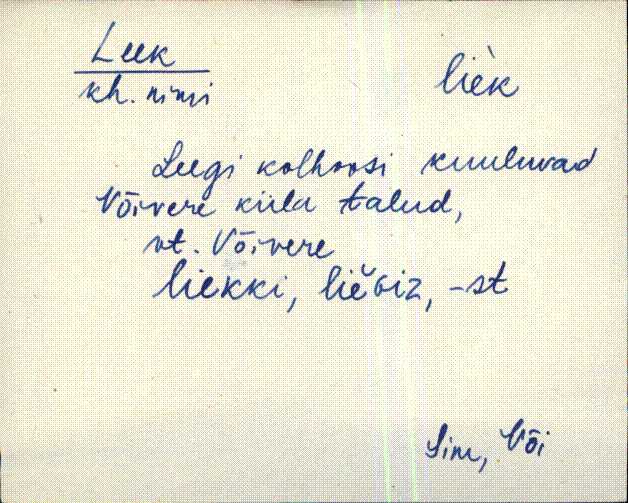 Leek
lièk
kh. nimi
Leegi kolhoosi kuuluvad
Võivere küla talud,
vt. Võivere
liekki, lieɢiz, -st
Sim, Või